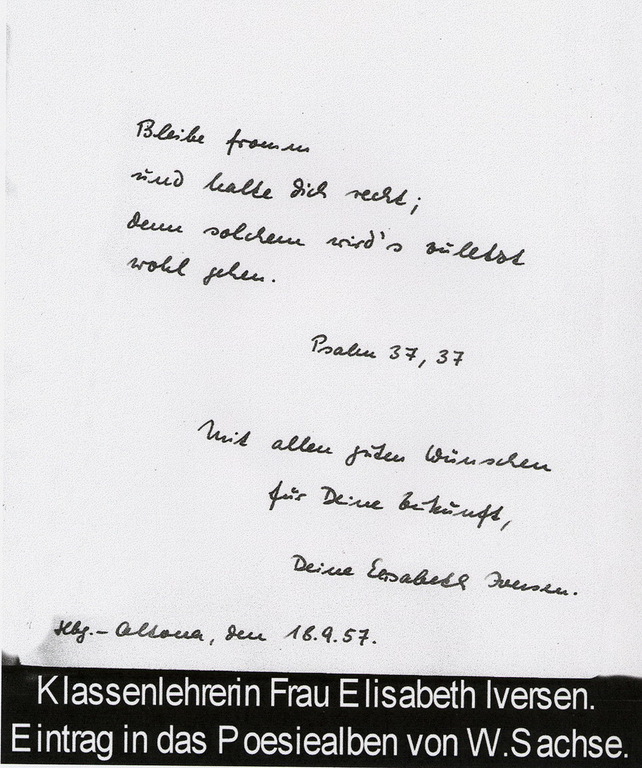 Bleibe fromm
und halte dich recht;
denn solchem wird's zuletzt
wohl gehen.
Psalm 37, 37
Mit allen guten Wünschen
für Deine Zukunft,
Deine Elisabeth Iversen.
Hbg.-Altona, den 16.9.57.
Klassenlehrerin Frau Elisabeth Iversen.
Eintrag in das Poesiealben von W.Sachse.